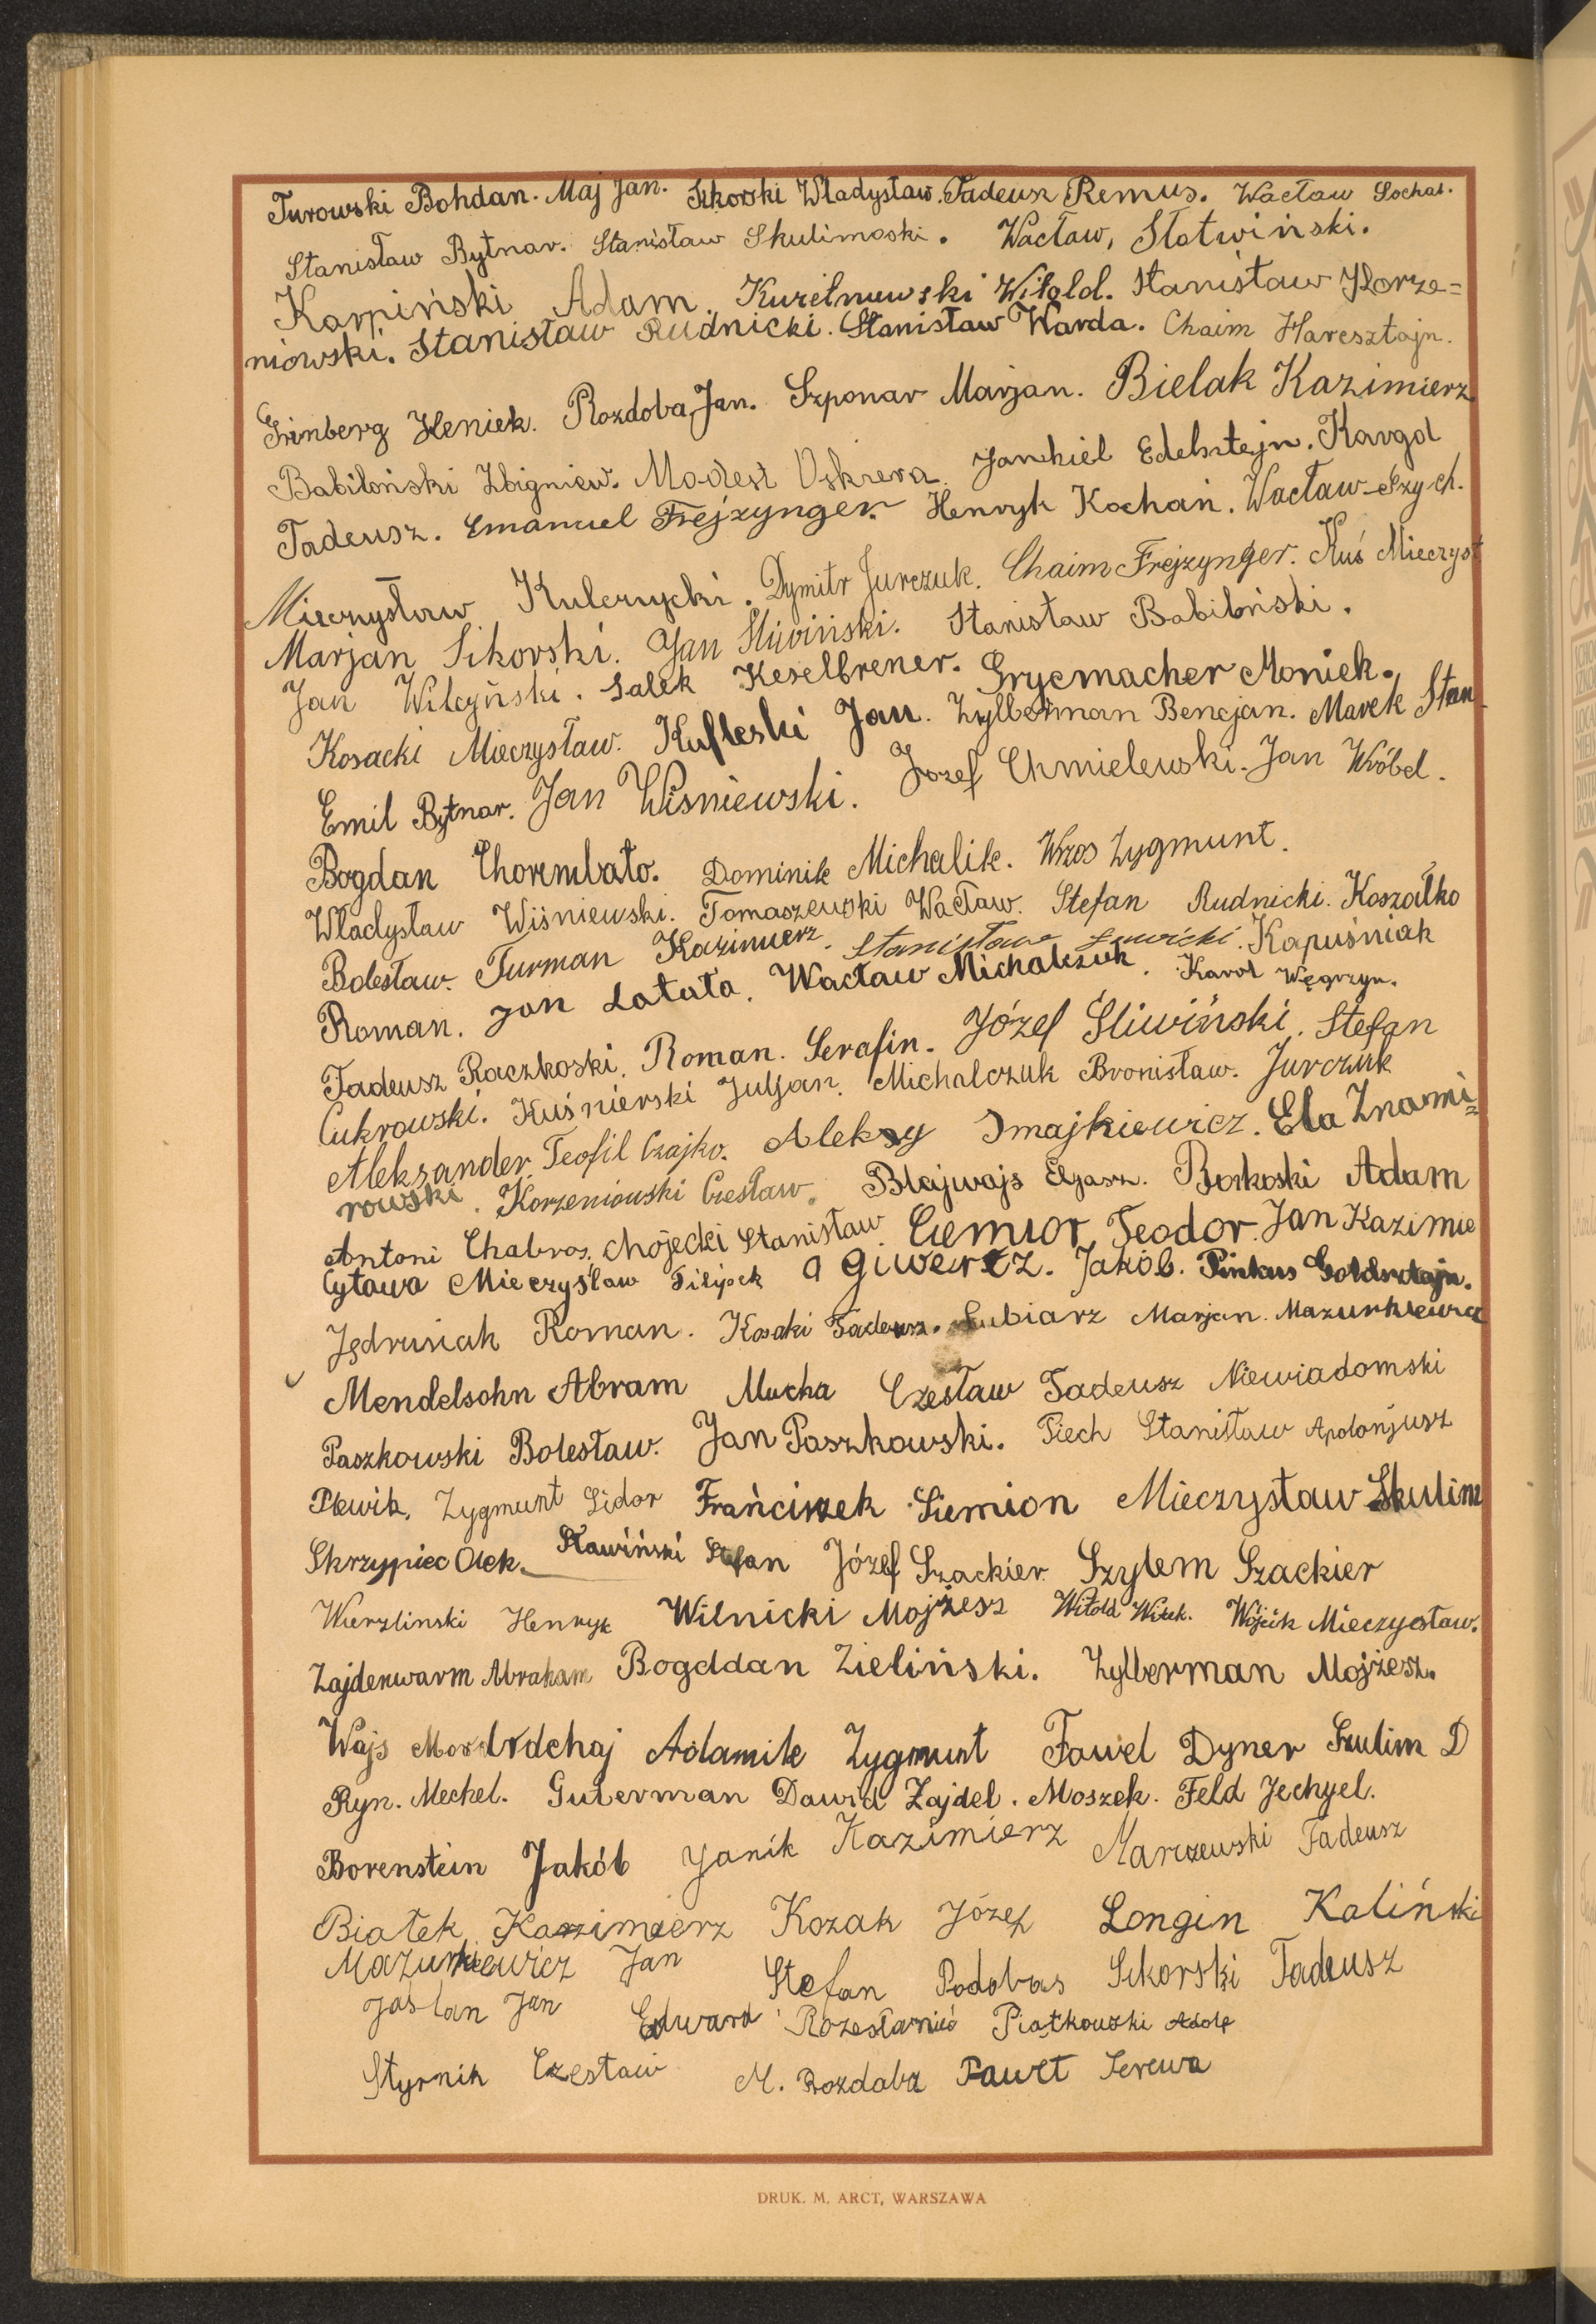 Turowski Bohdan. Maj Jan. Sikorski Władysław. Tadeusz Remus. Wacław Sochal.
Stanisław Bytnar. Stanisław Skulimoski. Wacław, Słotwiński.
Karpiński Adam. Witold. Stanisław Korze=
niowski. Stanisław Rudnicki. Stanisław Warda. Chaim Haresztajn.
Grinberg Heniek. Rozdoba Jan. Szponar Marjan. Bielak Kazimierz
Babiloński Zbigniew. Modest Oskiera. Jankiel Edelsztejn. Kargol
Tadeusz. Emanuel Frejzynger. Henryk Kochań. Wacław Szych.
Mieczysław Kulczycki. Dymitr Jurczuk. Chaim Frejzynger. Kuś Mieczysł
Marjan Sikorski. Jan Śliwiński. Stanisław Babiloński.
Jan Wilczyński. Salek Keselbrener. Grycmacher Moniek.
Kosacki Mieczysław. Kufleski Jan. Zylberman Bencjan. Marek Stan
Emil Bytnar. Jan Wiśniewski. Jozef Chmielewski. Jan Wróbel.
Bogdan Chorembało. Dominik Michalik. Wzos Zygmunt.
Władysław Wiśniewski. Tomaszewski Wacław. Stefan Rudnicki. Koszałko
Bolesław. Furman Kazimierz. Stanisław Sawicki. Kapuśniak
Roman. Jan Łatała. Wacław Michalczuk. Karol Węgrzyn.
Tadeusz Raczkoski. Roman. Serafin. Józef Śliwiński. Stefan
Cukrowski. Kuśnierski Juljan. Michalczuk Bronisław. Jurczuk
Aleksander. Teofil Czajko. Aleksy Smajkiewicz. Ela Znami=
rowski. Korzeniowski Czesław. Blajwajs Eljasz. Borkoski Adam
Antoni Chabros. Chojecki Stanisław. Ciemior Teodor. Jan Kazimie
Cytawa Mieczysław Filipek a Giwercz. Jakób. Pinkus Goldsztajn.
Jędrusiak Roman. Kosaki Tadeusz. Lubiarz Marjan. Mazurkiewicz
Mendelsohn Abram Mucha Czesław Tadeusz Niewiadomski
Paszkowski Bolesław. Jan Paszkowski. Piech Stanisław Apolonjusz
Plewik. Zygmunt Sidor Frańciszek Siemion Mieczysław Skulim
Skrzypiec Olek. Sławiński Stefan Józef Szackier Szylem Szackier
Wierzlinski Henryk Wilnicki Mojżesz Witold Witek. Wójcik Mieczysław.
Zajdenwarm Abraham Bogddan Zieliński. Zylberman Mojżesz.
Wajs Mordrdchaj Adamik Zygmunt Fawel Dyner Szulim D
Ryn. Mechel. Guterman Dawid Zajdel. Moszek. Feld Jechyel.
Borenstein Jakób Janik Kazimierz Marczewski Tadeusz
Białek Kazimierz Kozak Józef Longin Kaliński
Mazurkiewicz Jan Stefan Podobas Sikorski Tadeusz
Jaslan Jan Edward Rozesłaniić Piątkowski Adolf
Styrnik Czesław M. Rozdoba Paweł Serewa
DRUK. M. ARCT, WARSZAWA